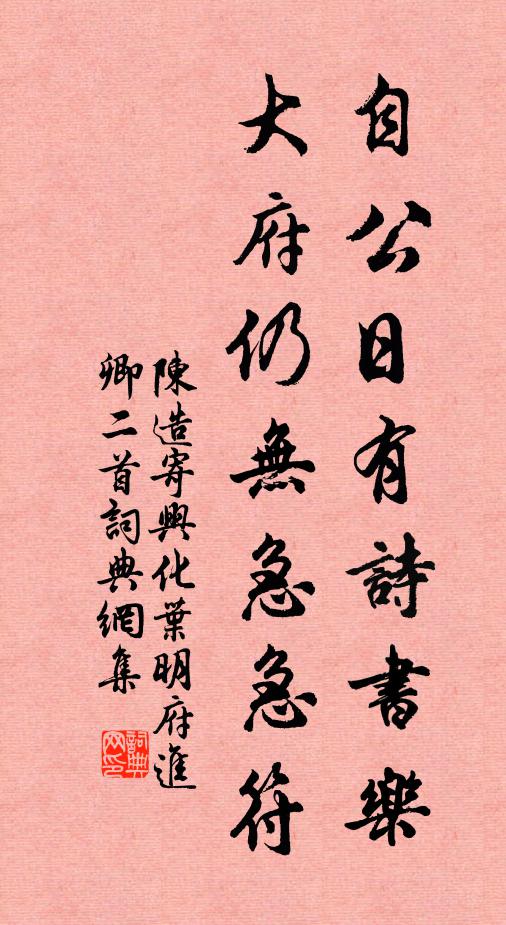 自公日有詩書樂
大府仍無急急符
陳造寄興化葉明府進
卿二首詞典網集
詞典網印